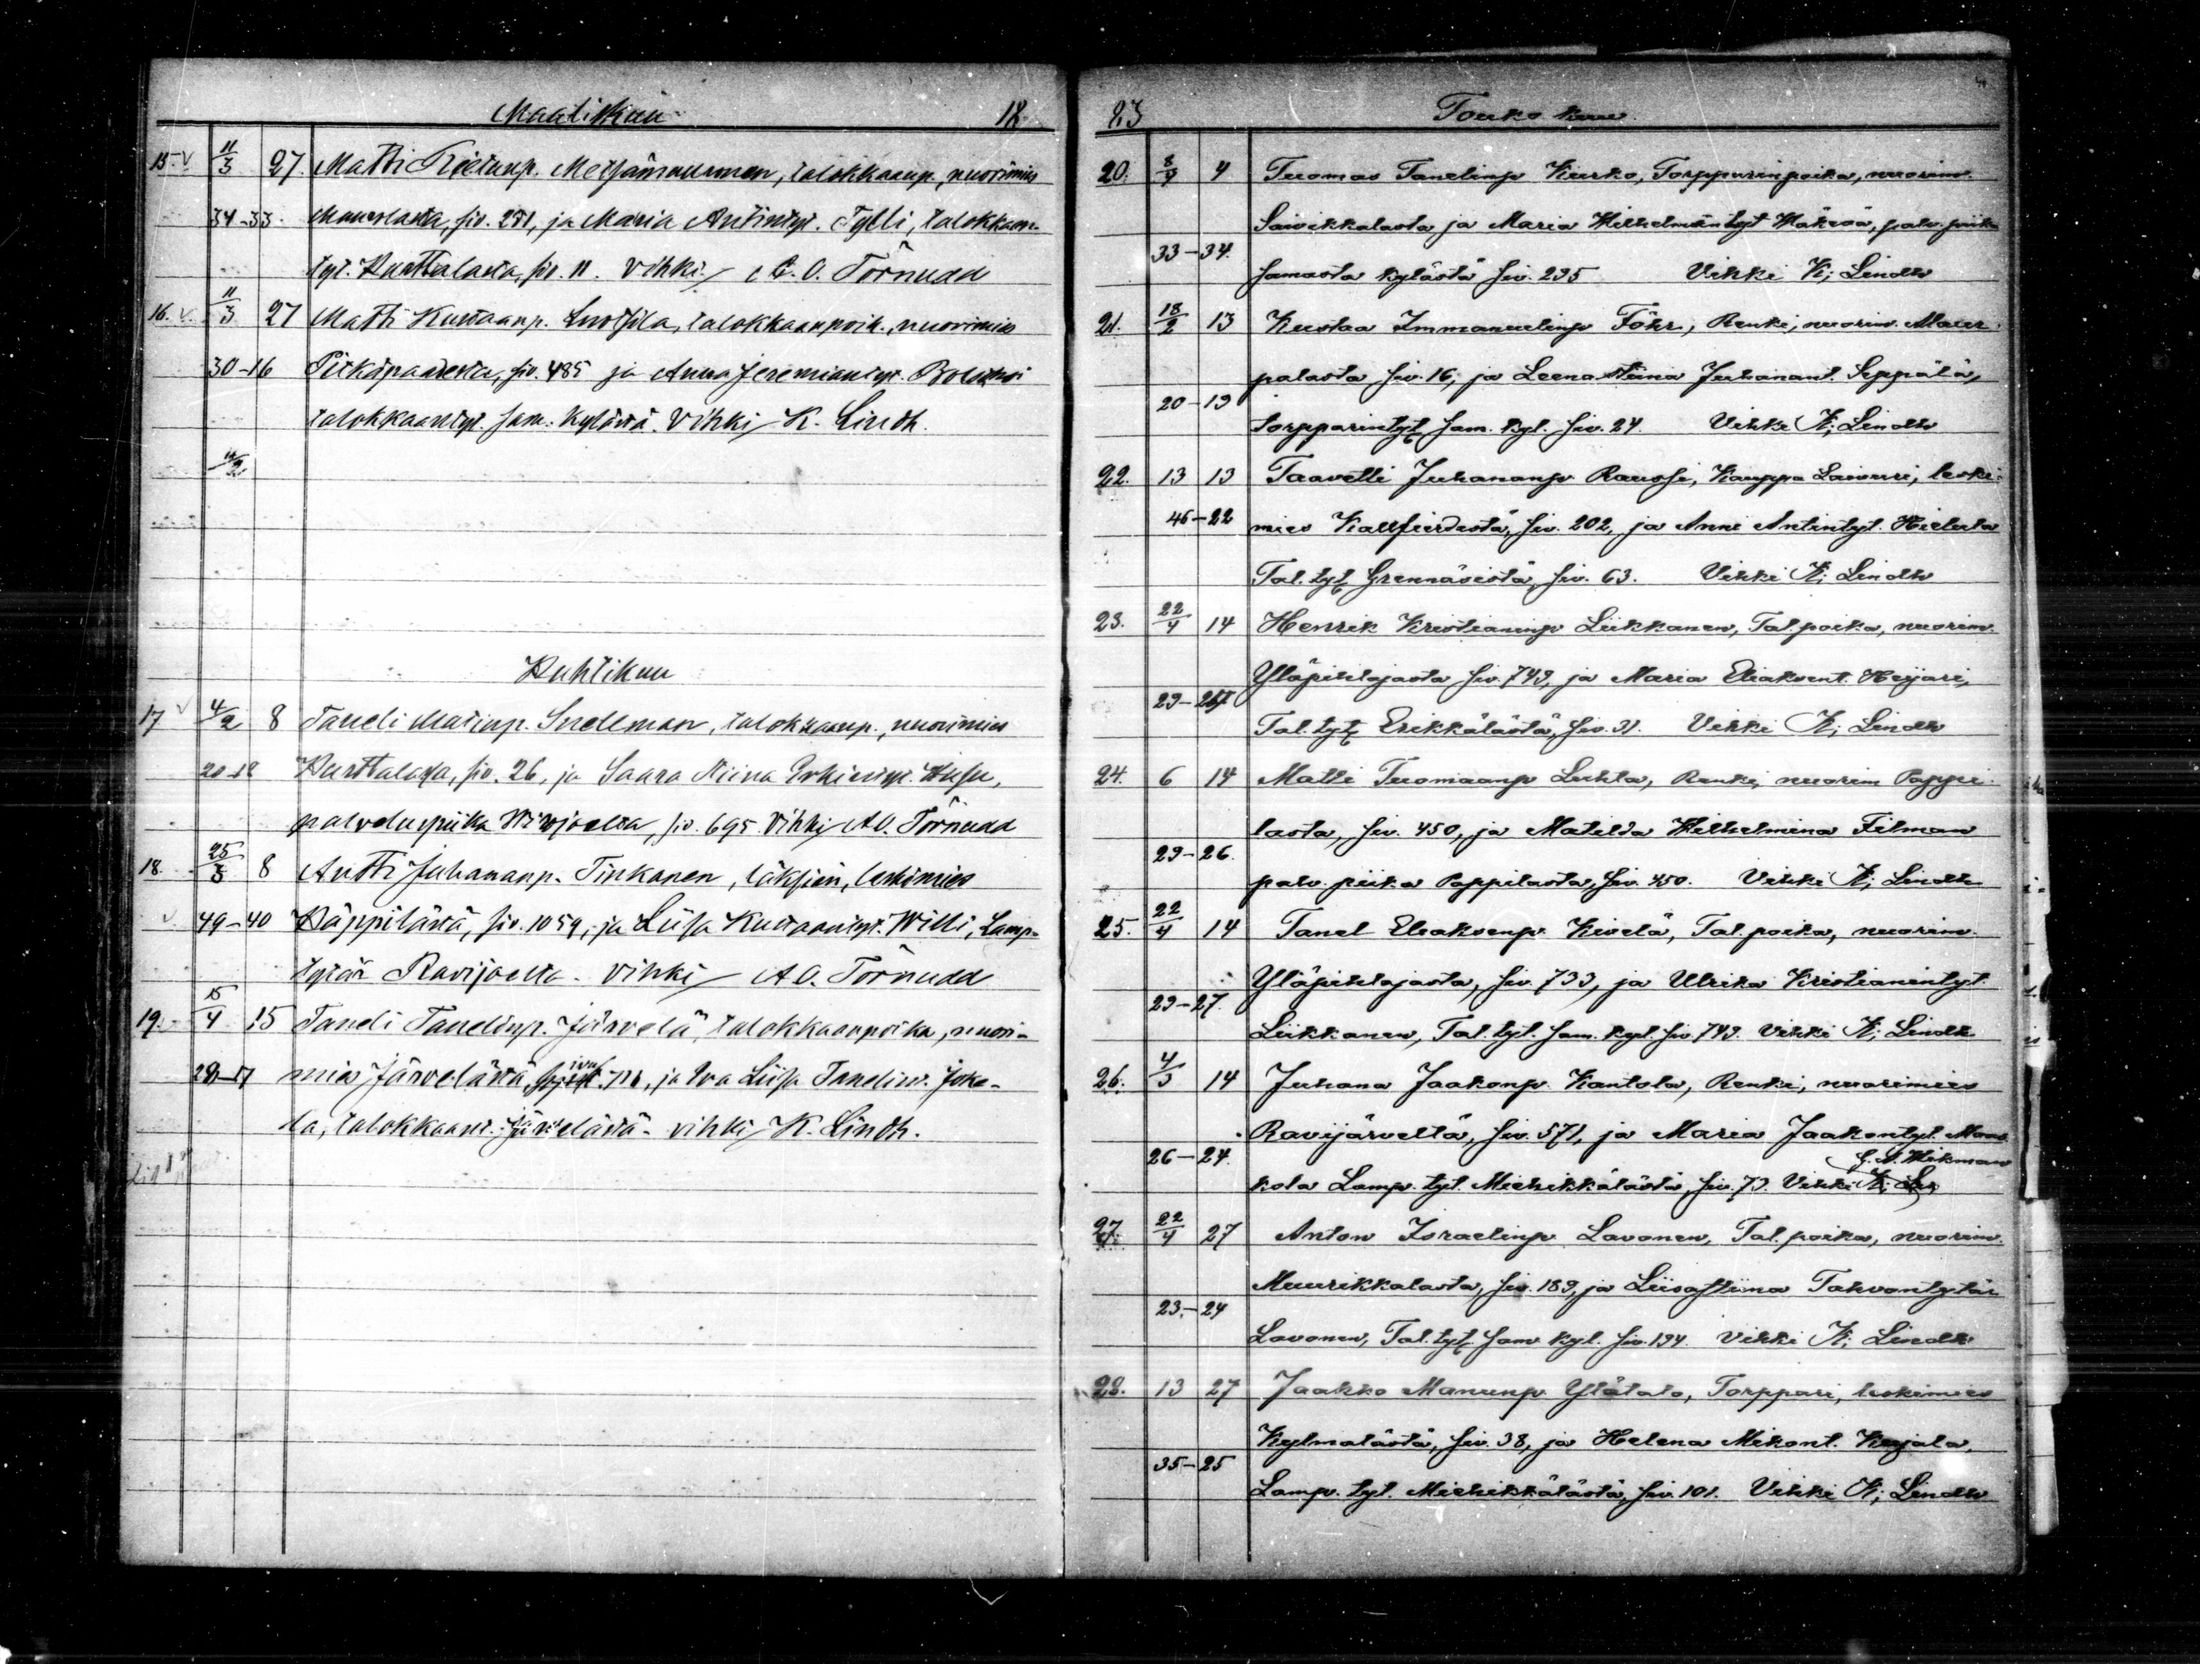 Maaliskuu 18
15. 11/3 27. Matti Rietunp. Metsämuuronen, talokkaanp., nuorimies
34-33 sta, siv. 271, ja Maria Antintyt. Tylli, talokkaan-
tyt. Kurttalasta, siv. 11. Vihki / A. O. Törnudd
16. 11/3 27 Matti Kustaanp. Suostila, talokkaanpoik., nuorimies
30-16 Pitkäpaadesta, siv. 485 ja Anna Jeremiantyt.
talokkaantyt. sam. kylästä. Vihki / K. Lindh.
Huhtikuu
17 4/2 8 Taneli Matinp. Snellman, talokkaanp., nuorimies
20-18 Kurttalasta, siv. 26, ja Saara Stiina Erkintyt. Husu,
palveluspiika Wirojoelta, siv. 695. Vihki / A O. Törnudd
18. 25/3 8 Antti Juhananp. Tinkanen, läksiäin, leskimies
49-40 Käppilästä, siv. 1059, ja Liisa Kustaantyt. Willi, Lamp-
tytär Ravijoelta. vihki / A O. Törnudd
19. 15/4 15 Taneli Tanelinp. Järvelä, talokkaanpoika, nuori-
28-17 mies Järvelästä, 716, ja Eva Liisa Tanelint. Joke-
la, talokkaant. Järvelästä. vihki / K. Lindh.
83 Touko kuu.
20. 4 Tuomas Tanelinp Kurko, Torpparinpoika, nuorim.
Saivikkalasta ja Maria Wilhelmiintyt Mäkeä, palv. piika
33-34. samasta kylästä siv. 235 Vihki K; Lindh
21. 18/2 13 Kustaa Immanuelinp Föhr, Renki, nuorim. Maur-
palasta siv. 16, ja Leena Stiina Juhanant. Seppälä,
20-19 torpparintyt sam. kyl. siv. 24. Vihki K; Lindh
22. 13 13 Taavetti Juhananp Raussi, Kauppa Laivuri, leski-
46-22 mies Kallfierdestä, siv. 202, ja Anni Antintyt. Hieluta
Tal. tyt Grennäsistä, siv. 63. Vihki K; Lindh
23. 22/4 14 Henrik Kristianinp Liikkanen, Tal poika, nuorim.
Yläpihlajasta siv. 749, ja Maria Eliaksent. Heijari,
Tal. tyt Erikkälästä, siv. 31. Vihki K; Lindh
24. 6 14 Matti Tuomaanp Luhta, Renki, nuorim Pappi-
lasta, siv. 450, ja Matilda Wilhelmina Filman
29-26. palv. piika Pappilasta, siv. 450. Vihki K; Lindh
25. 22/4 14 Tanel Eliaksenp. Kivelä, Tal. poika, nuorim.
Yläpihlajasta, siv. 733, ja Ulrika Kristianintyt.
29-27. Liikkanen, Tal. tyt. sam. kyl. siv 749. Vihki K; Lindh
26. 4/3 14 Juhana Jaakonp. Kantola, Renki, nuorimies
Ravijärveltä, siv. 571, ja Maria Jaakontyt. Mus-
26-24. G. A. Wikman
kola Lamp. tyt. Miehikkälästä, siv. 73. Vihki K; L
27. 22/4 27 Anton Israelinp Lavonen, Tal. poika, nuorim.
Muurikkalasta, siv. 189, ja Liisastiina Tahvontytär
23-24 Lavonen, Tal. tyt sam kyl. siv. 194. Vihki K; Lindh
28. 13 27 Jaakko Manunp Ylätalo, Torppari, leskimies
Kylmälästä, siv. 38, ja Helena Mikont. Kujala,
35-25 Lamp. tyt. Miehikkälästä, siv. 101. Vihki K; Lindh